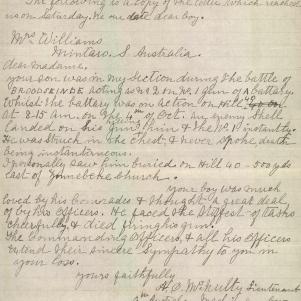 The following is a copy of the letter which reached
us on Saturday. Re our late dear boy.
Mrs Williams
Mintaro. S Australia.
dear Madame.
your son was in my Section during the battle of
BROODSEINDE acting as No 2 on No 1 gun of A battary.
Whilst the battary was in action on Hill 40
at 8-15 a.m. on the 4th of Oct. An enemy shell
landed on his gun, him & the No 1 instantly.
He was struck in the chest & never spoke death
being instantaneous.
I personally saw him buried on Hill 40 - 500 yds
east of Zonnebeke Church.
your boy was much
loved by his Comrades & thought a great deal
of by his Officers. He faced the stiffest of tasks
cheerfully & died firing his gun.
The Commanding Officers & all his Officers
extend their sincere sympathy to you in
your loss.
yours faithfully
A. O. McNulty Lieutenant